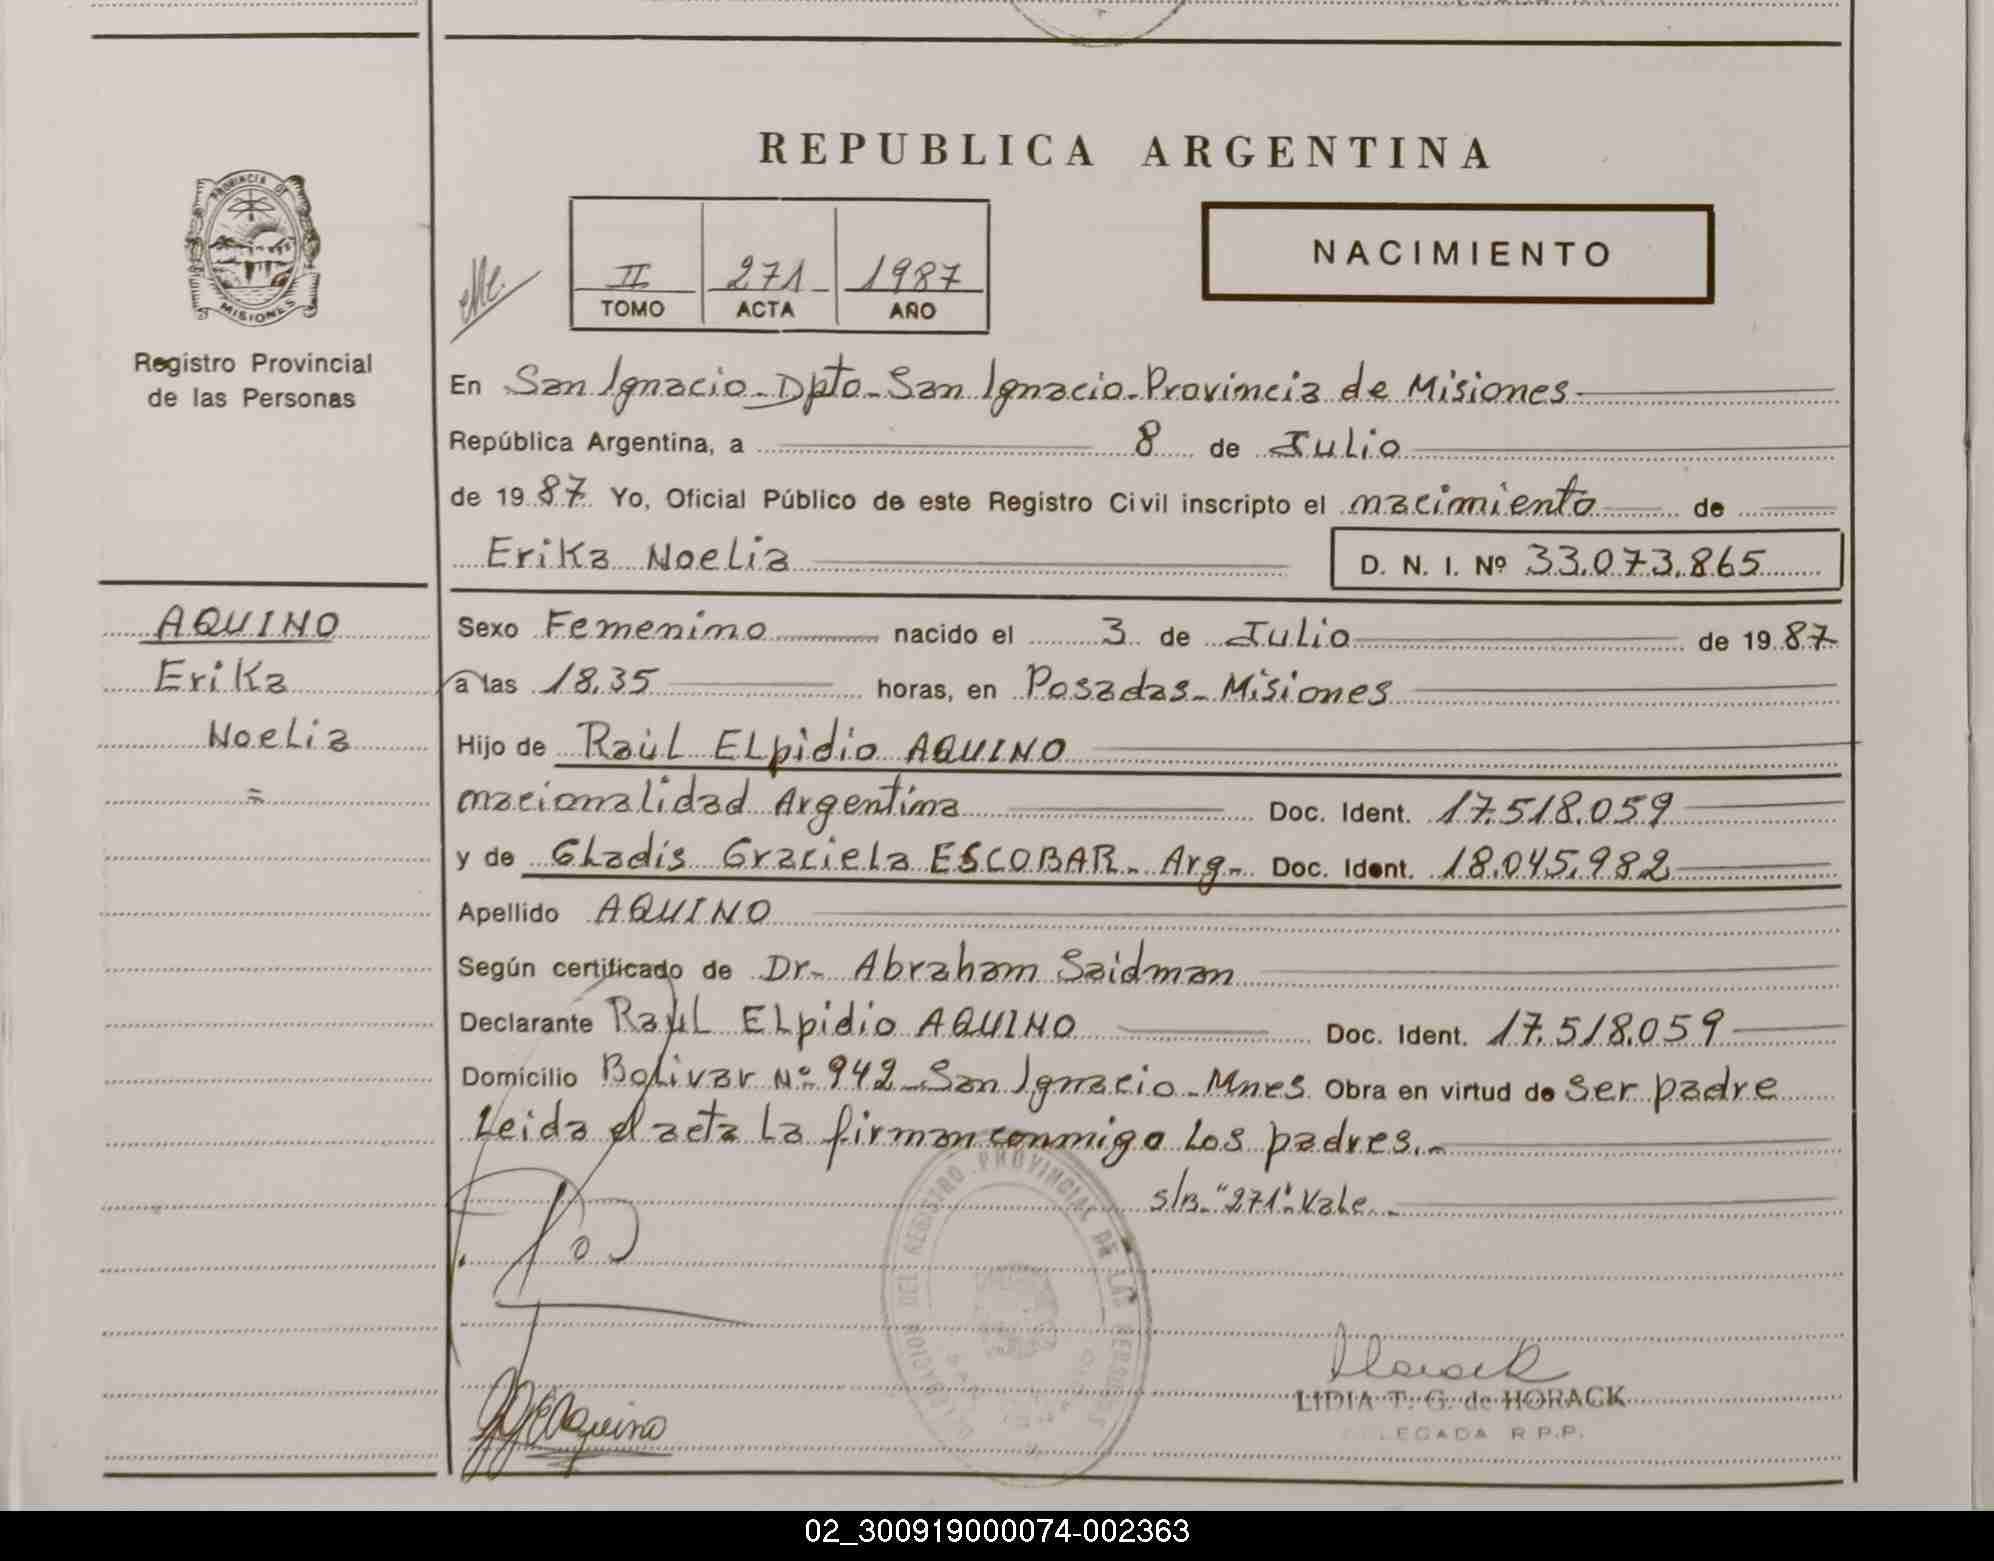 REPUBLICA ARGENTINA
PROVINCIA DE MISIONES
Registro Provincial
de las Personas
II 271 1987
TOMO ACTA AÑO
NACIMIENTO
En San Ignacio - Dpto - San Ignacio - Provincia de Misiones
República Argentina, a 8 de Julio
de 1987 Yo, Oficial Público de este Registro Civil inscripto el nacimiento de
Erika Noelia D. N. I. Nº 33.073.865
AQUINO
Erika
Noelia
=
Sexo Femenino nacido el 3 de Julio de 1987
a las 18,35 horas, en Posadas - Misiones
Hijo de Raúl ELpidio AQUINO
nacionalidad Argentina Doc. Ident. 17.518.059
y de GLadis Graciela ESCOBAR - Arg - Doc. Ident. 18.045.982
Apellido AQUINO
Según certificado de Dr - Abraham Saidman
Declarante Raúl ELpidio AQUINO Doc. Ident. 17.518.059
Domicilio Bolivar Nº 942 - San Ignacio - Mnes Obra en virtud de ser padre
Leida el acta La firman conmigo Los padres.-
s/B - "271" - Vale -
DELEGACION DEL REGISTRO PROVINCIAL DE LAS PERSONAS
Horack
LIDIA T. G. de HORACK
DELEGADA R.P.P.
Aquino
02_300919000074-002363